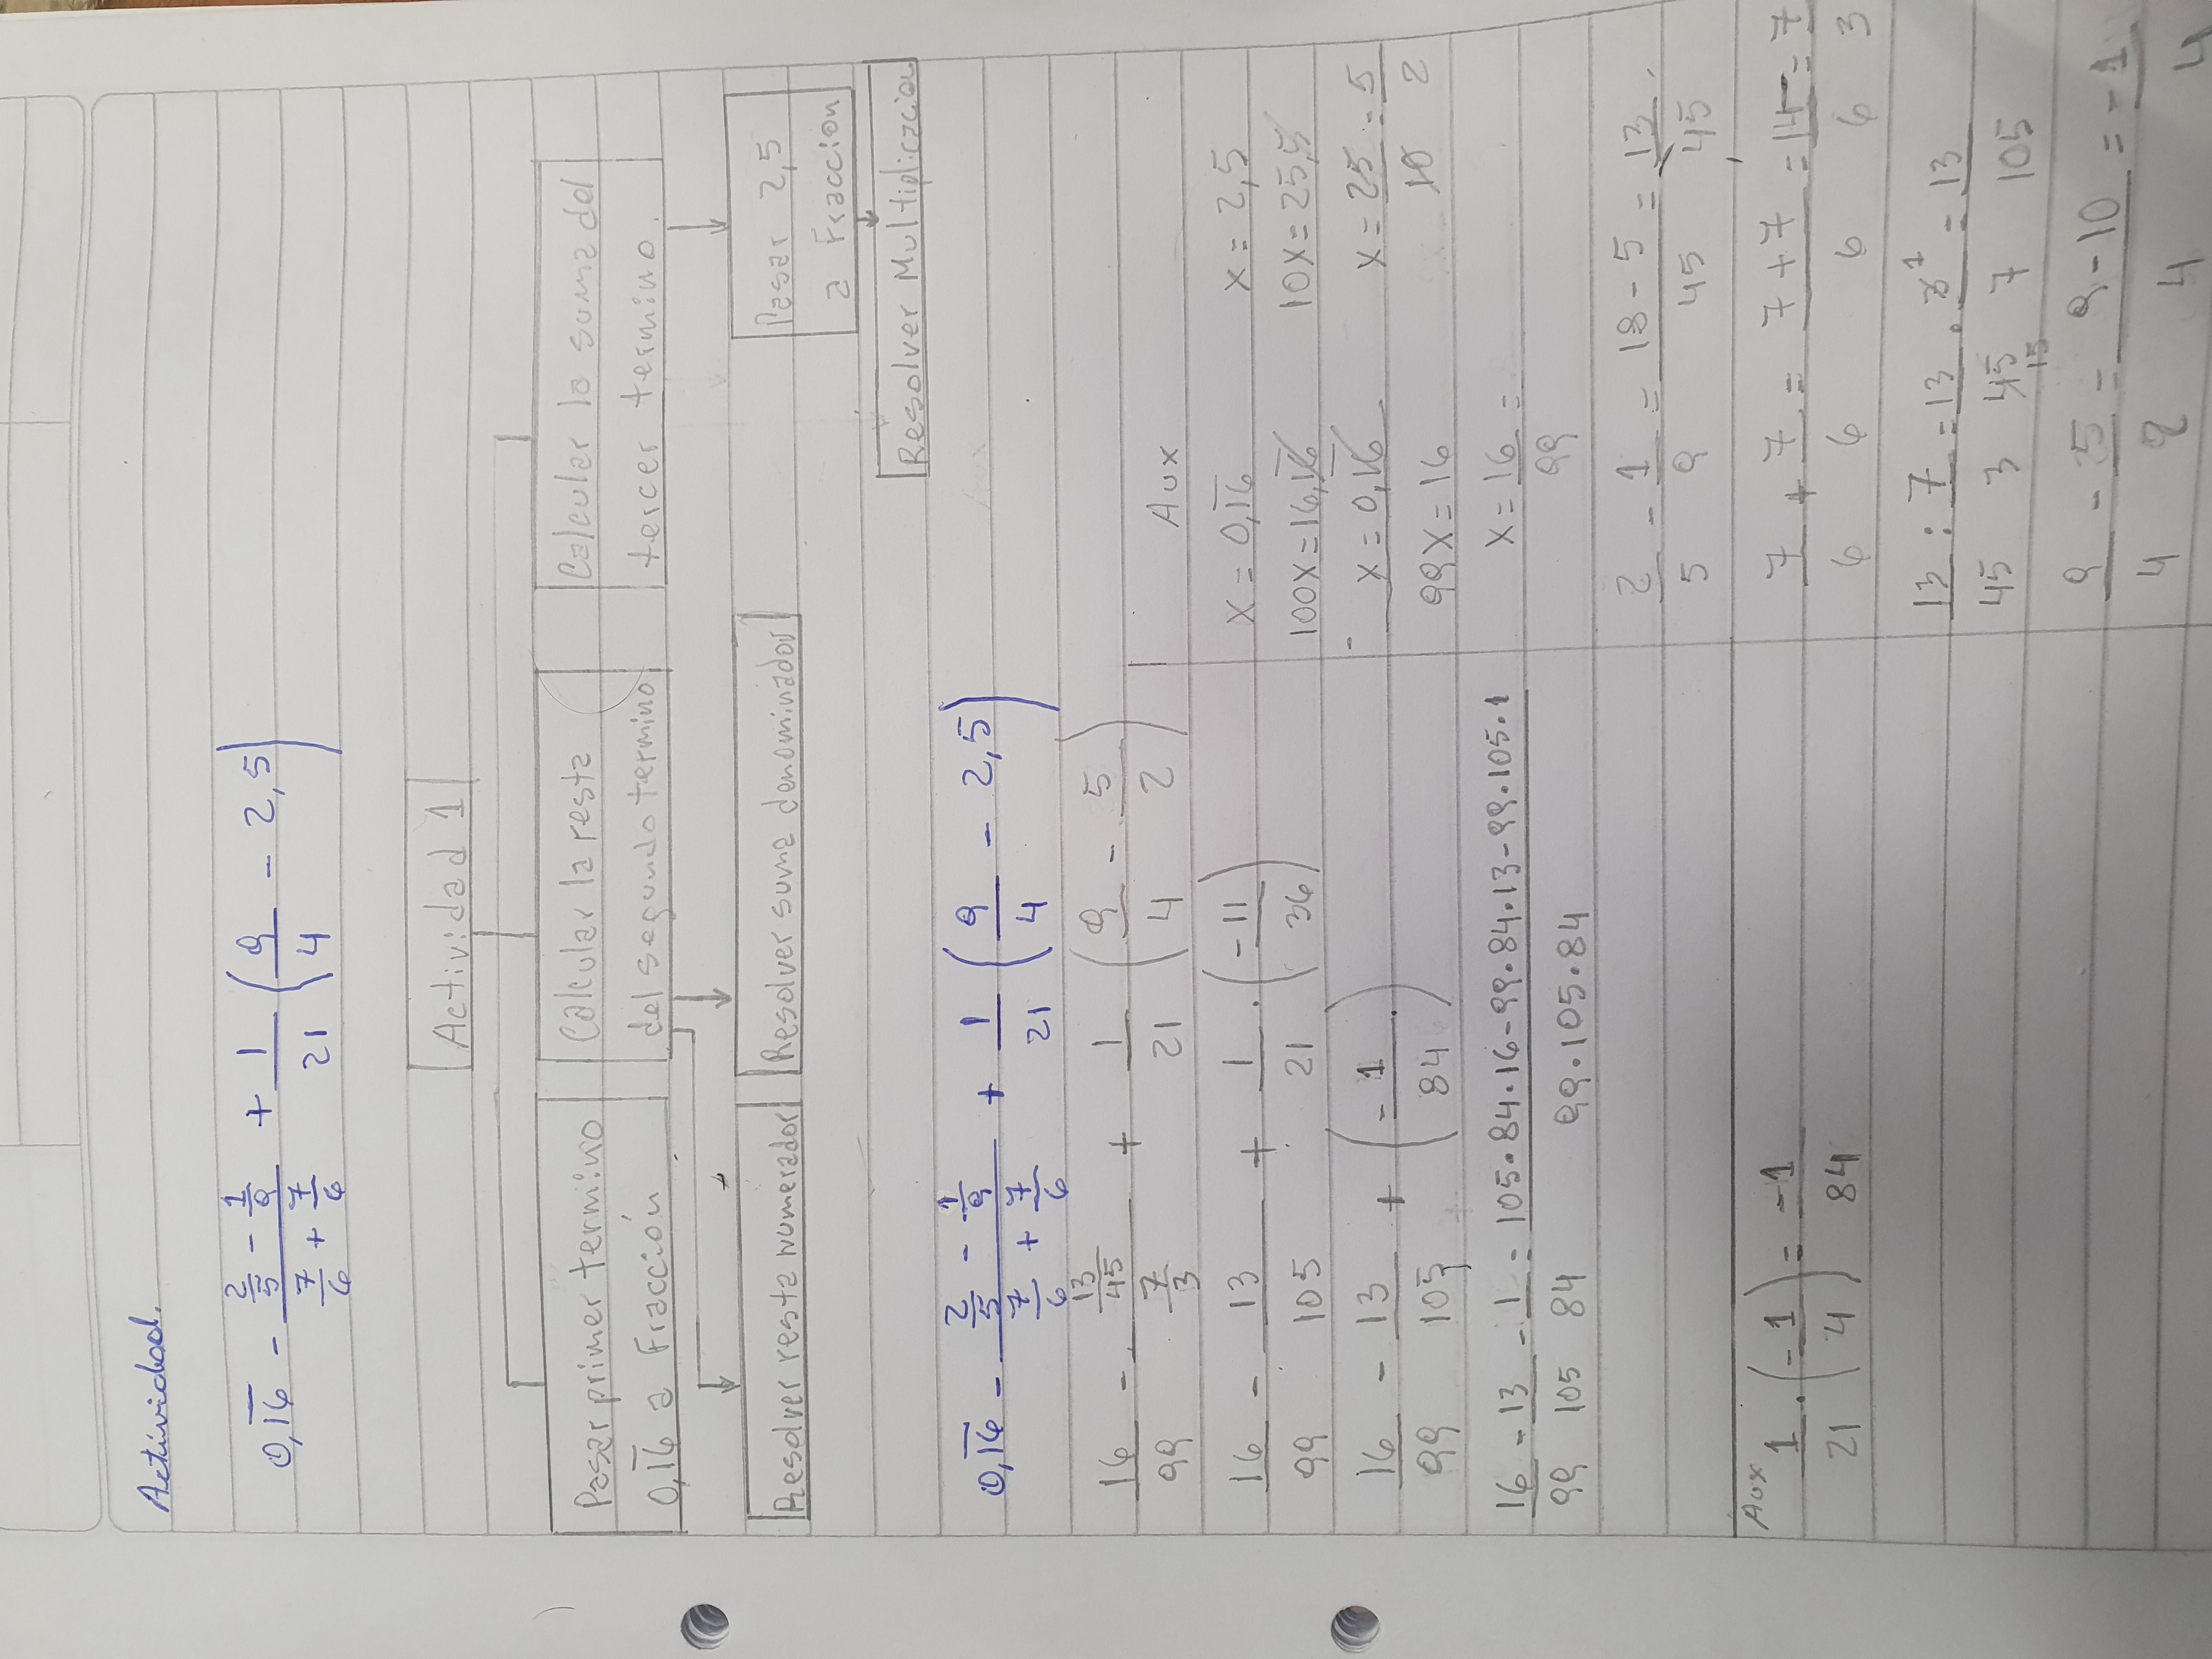 Actividad.
0,1̅6̅ - (2/5 - 1/9)/(7/6 + 7/6) + 1/21 (9/4 - 2,5)
Actividad 1
Pasar primer termino
0,1̅6 a Fracción
Calcular la resta
del segundo termino
Calcular la suma del
tercer termino.
Resolver resta numerador
Resolver suma denominador
Pasar 2,5
a Fraccion
Resolver Multiplicacion
0,1̅6̅ - (2/5 - 1/9)/(7/6 + 7/6) + 1/21 (9/4 - 2,5)
16/99 - (13/45)/(7/3) + 1/21 (9/4 - 5/2)
16/99 - 13/105 + 1/21 · (-11/36)
16/99 - 13/105 + (-1/84)
16/99 - 13/105 - 1/84 = (105·84·16-99·84·13-99·105·1)/(99·105·84)
Aux
1/21 · (-1/4) = -1/84
Aux
x = 0,1̅6̅
100x = 16,1̅6̅
- x = 0,1̅6̅
99x = 16
x = 16/99 =
x = 2,5
10x = 25,5
x = 25/10 = 5/2
2/5 - 1/9 = (18 - 5)/45 = 13/45.
7/6 + 7/6 = (7+7)/6 = 14/6 = 7/3
13/45 : 7/3 = 13/45 15 · 3 1/7 = 13/105
9/4 - 5/2 = (9-10)/4 = -1/4